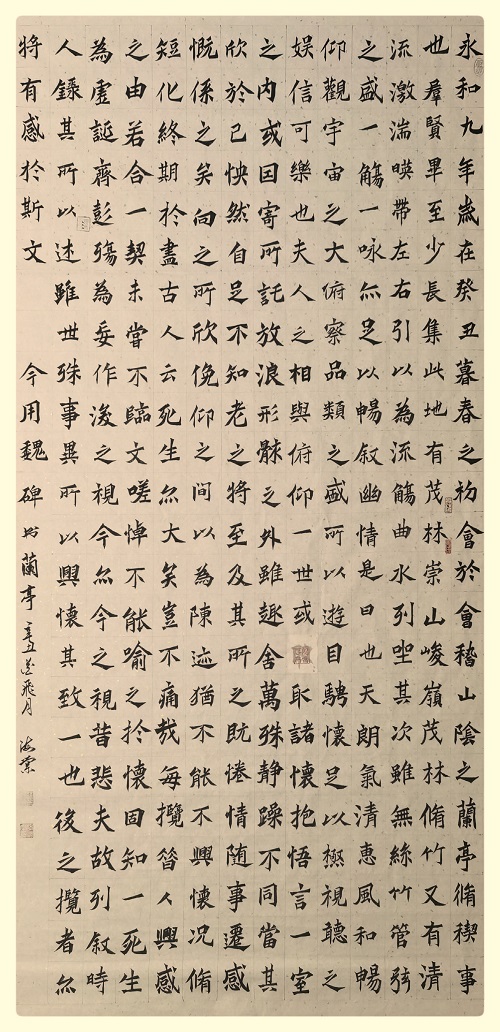 永和九年歲在癸丑暮春之初會於會稽山陰之蘭亭脩稧事
也羣賢畢至少長集此地有茂林崇山峻嶺茂林脩竹又有清
流激湍暎帶左右引以為流觴曲水列坐其次雖無絲竹管弦
之盛一觴一咏亦足以暢叙幽情是日也天朗氣清惠風和暢
仰觀宇宙之大俯察品類之盛所以遊目騁懷足以極視聽之
娛信可樂也夫人之相與俯仰一世或取諸懷抱悟言一室
之內或因寄所託放浪形骸之外雖趣舍萬殊静躁不同當其
欣於已怏然自足不知老之將至及其所之既惓情随事遷感
慨係之矣向之所欣俛仰之間以為陳迹猶不能不興懷況脩
短化終期於盡古人云死生亦大矣豈不痛哉每攬昔人興感
之由若合一契未嘗不臨文嗟悼不能喻之於懷固知一死生
為虛誕齊彭殤為妄作後之視今亦今之視昔悲夫故列叙時
人錄其所以述雖世殊事異所以興懷其致一也後之攬者亦
將有感於斯文 今用魏碑书蘭亭 辛丑